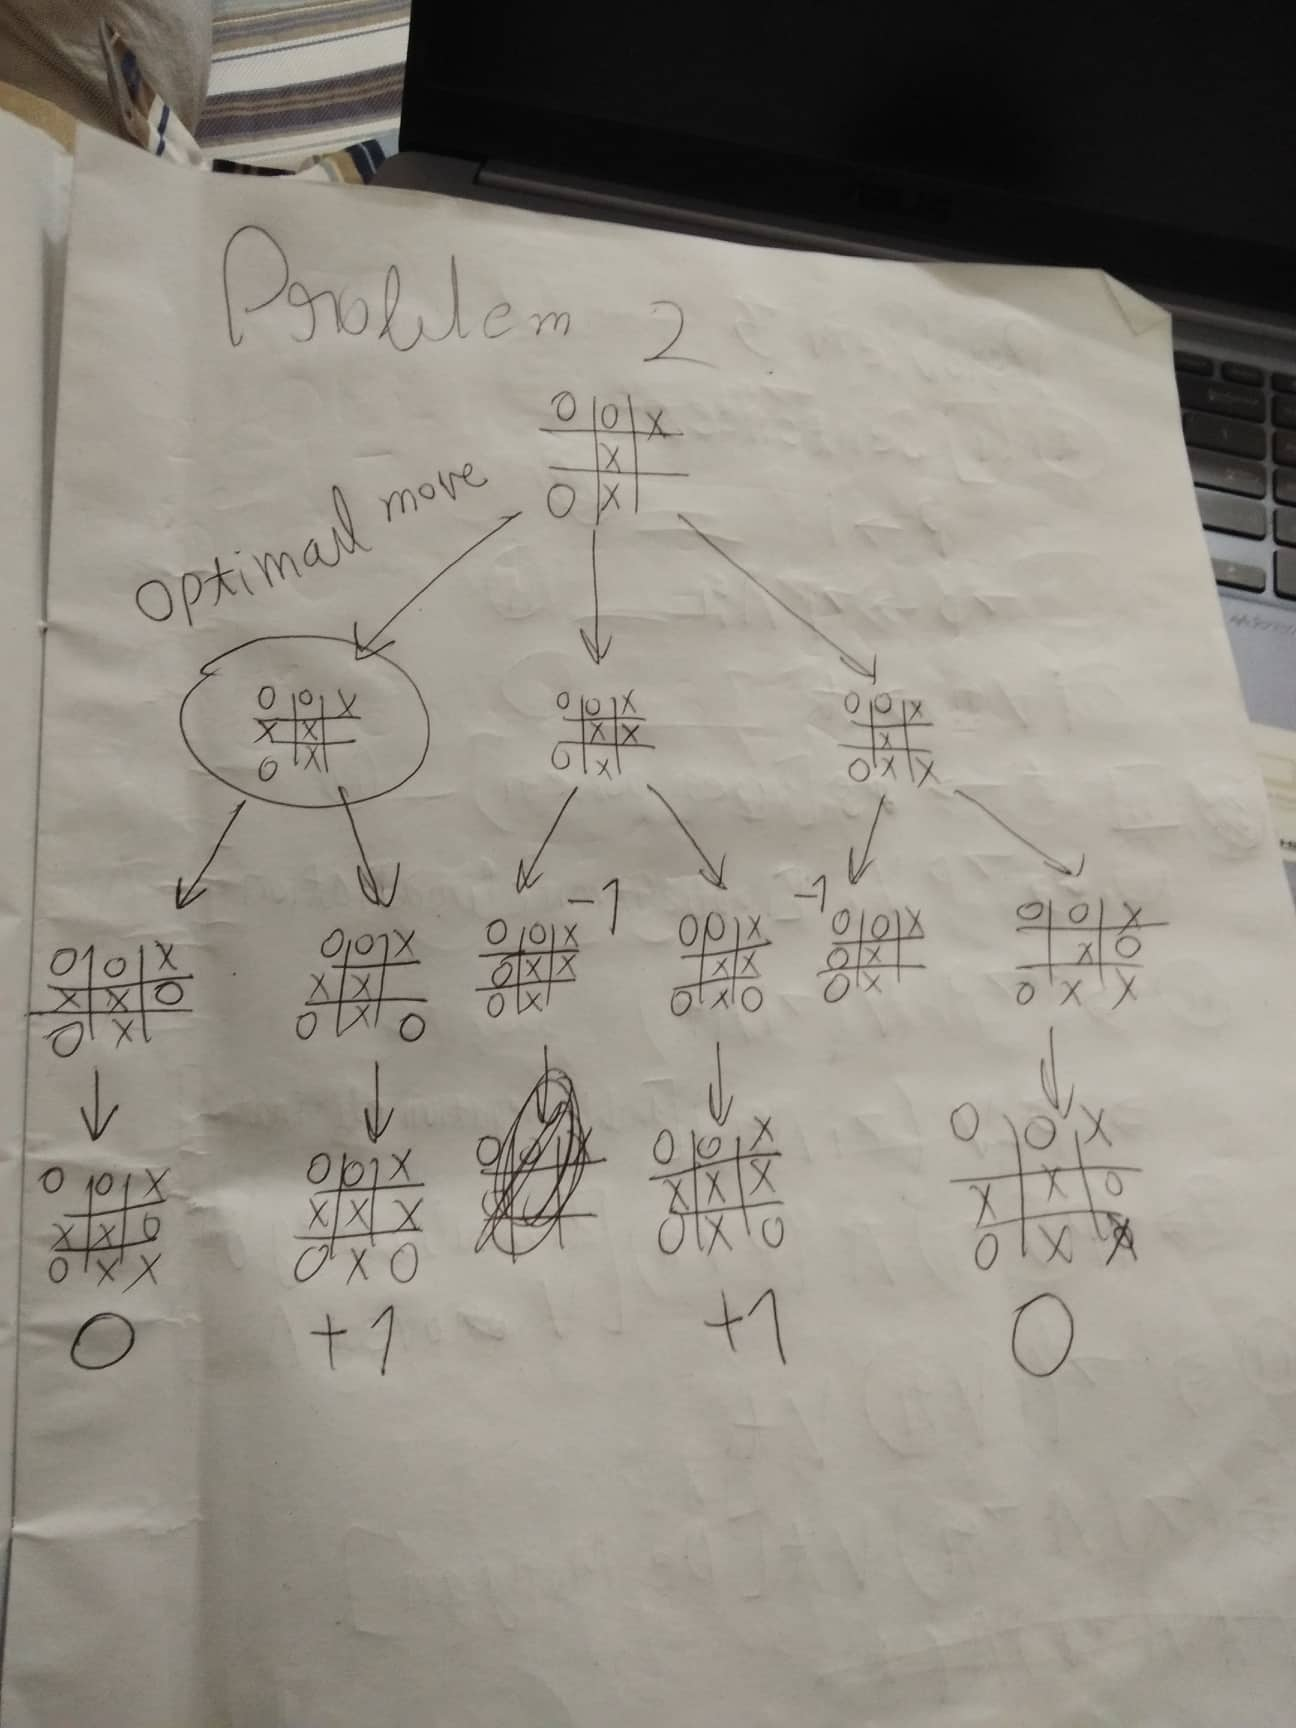 Problem 2
O O X
X
O X
optimal move
O O X
X X
O X
O O X
X X
O X
O O X
X
O X X
O O X
X X O
O X
O O X
X X
O X O
-1
O O X
O X X
O X
O O X
X X
O X O
-1
O O X
O X
O X
O O X
X O
O X X
O O X
X X O
O X X
O O X
X X X
O X O
O O X
X X X
O X O
O O X
X X O
O X X
0
+1
+1
0